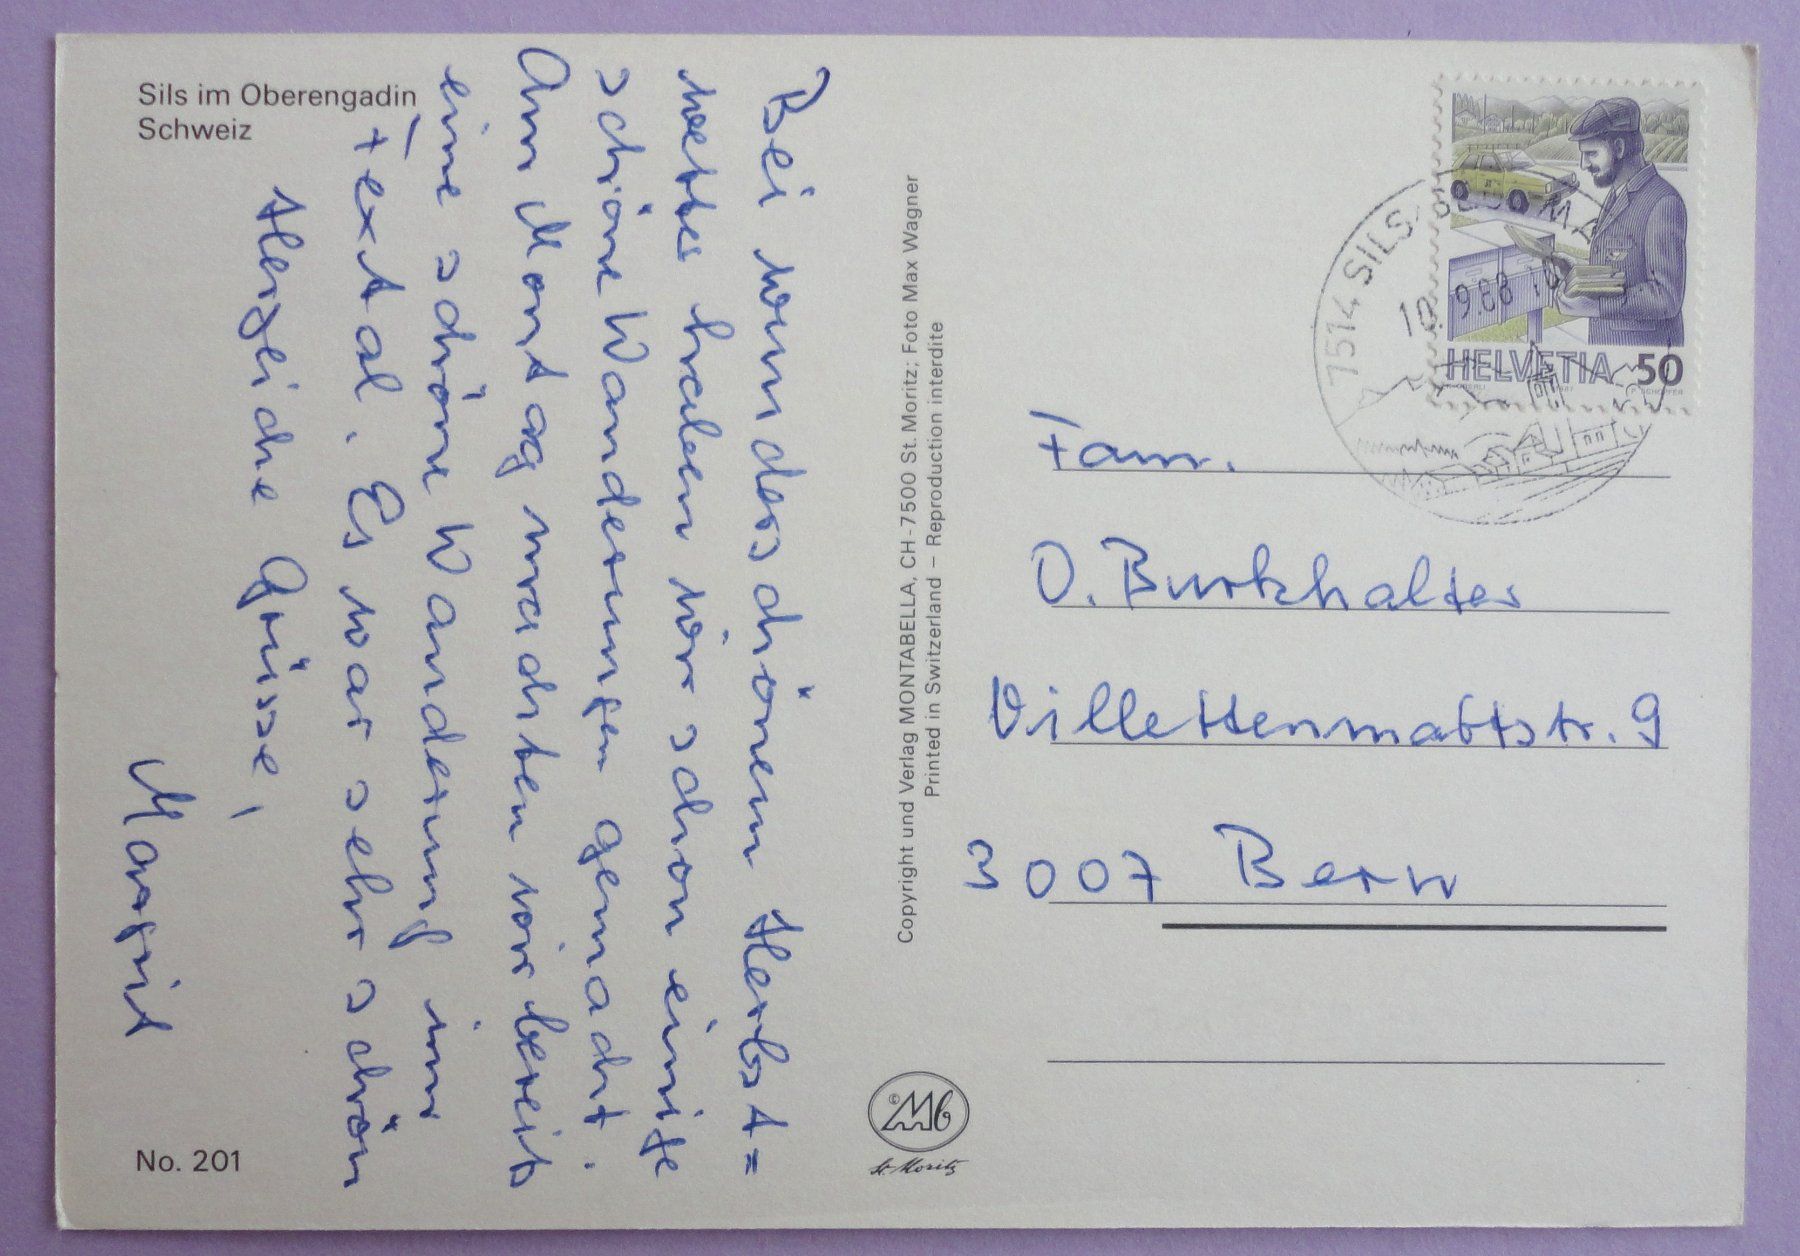 Sils im Oberengadin
Schweiz
Bei wunderschönem Herbst=
wetter haben wir schon einige
schöne Wanderungen gemacht.
Am Montag machten wir bereits
eine schöne Wanderung im
Fextal. Es war sehr schön
Herzliche Grüsse,
Margrit
No. 201
Copyright und Verlag MONTABELLA, CH-7500 St. Moritz; Foto Max Wagner
Printed in Switzerland – Reproduction interdite
Mb
St. Moritz
©
HELVETIA 50
7514 SILS
10. 9.88
Fam.
O. Burkhalter
Villettenmattstr. 9
3007 Bern